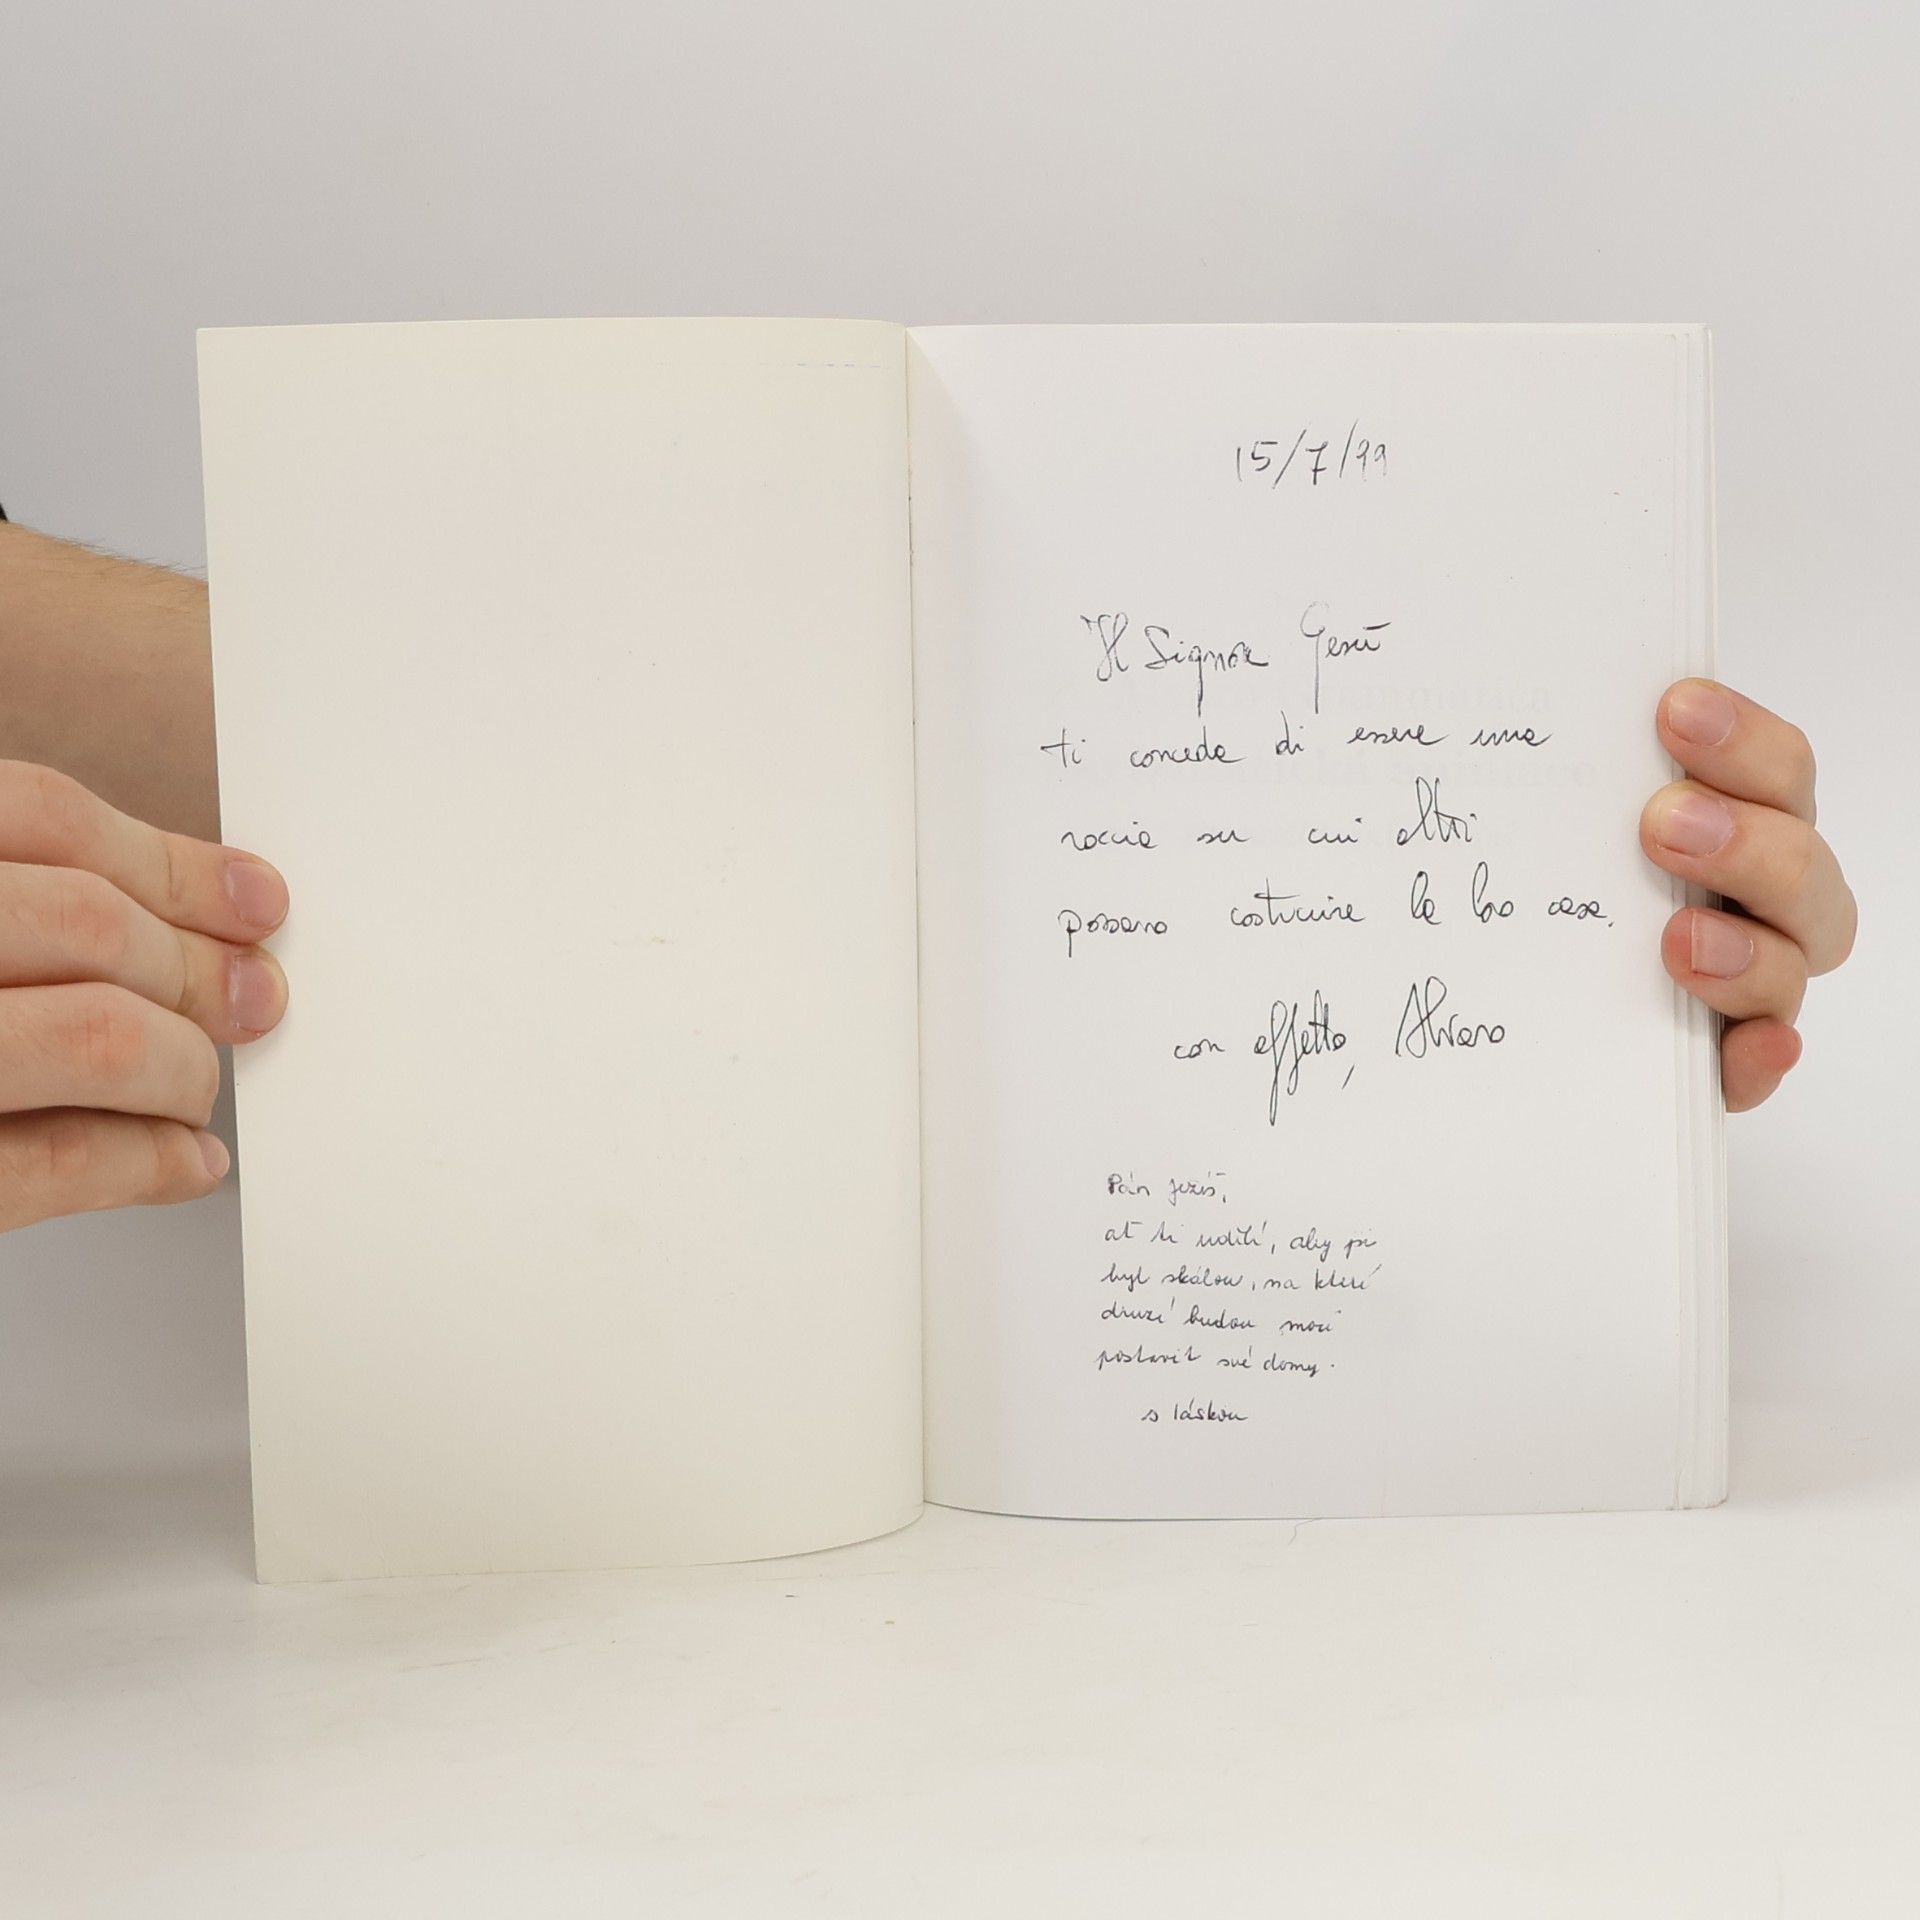 15/7/99
Il Signore Gesù
ti conceda di essere una
roccia su cui altri
possano costruire la loro casa.
con affetto, Alvaro
Pán Ježíš,
ať ti udělí, aby jsi
byl skálou, na které
druzí budou moci
postavit své domy.
s láskou